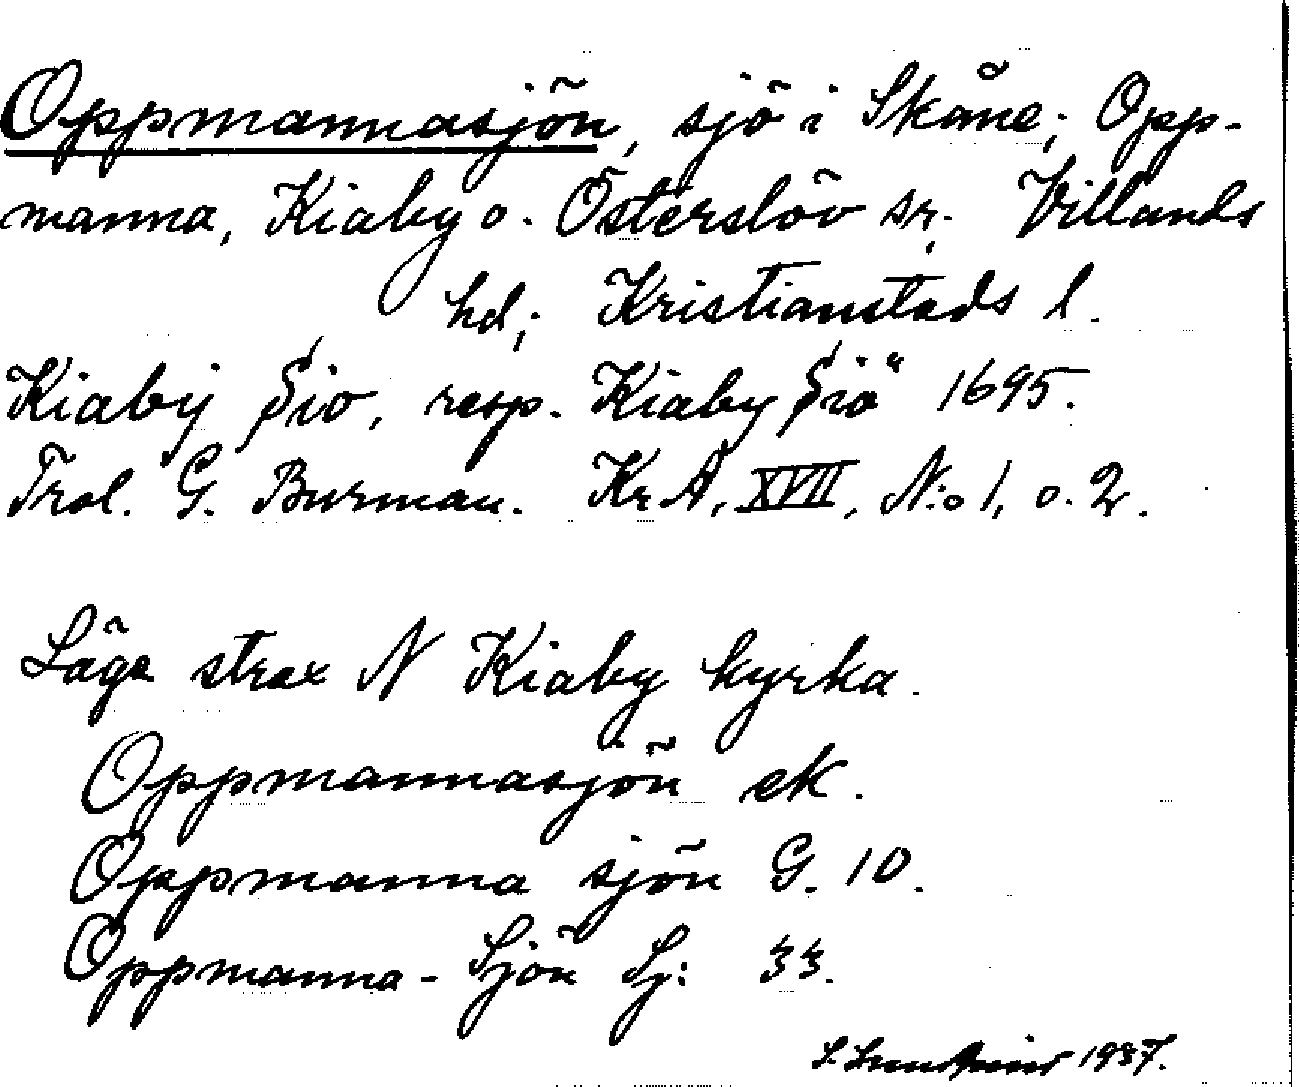 Oppmannasjön, sjö i Skåne; Opp-
manna, Kiaby o. Österslöv sr. Villands
hd; Kristianstads l.
Kiabij Sio, resp. Kiaby Siö 1695.
Trol. G. Burman. Kr A, XVII, N:o 1, o. 2.
Läge strax N Kiaby kyrka.
Oppmannasjön ek.
Oppmanna sjön G. 10.
Oppmanna-Sjön Lj: 33.
1937.